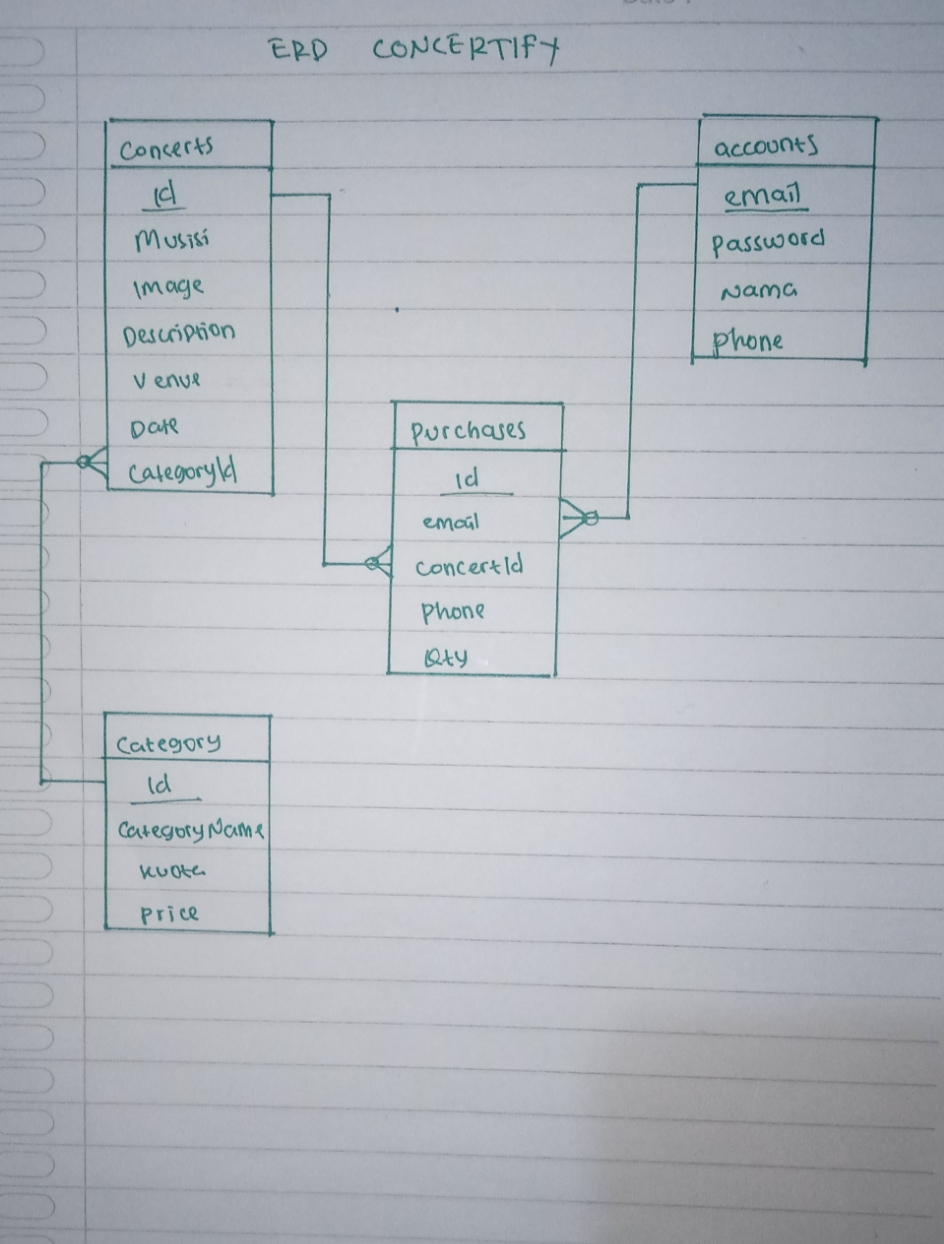 ERD CONCERTIFY
Concerts
Id
Musisi
Image
Description
Venue
Date
CategoryId
accounts
email
Password
Nama
Phone
Purchases
Id
email
ConcertId
Phone
Qty
Category
Id
CategoryName
Kuota
Price